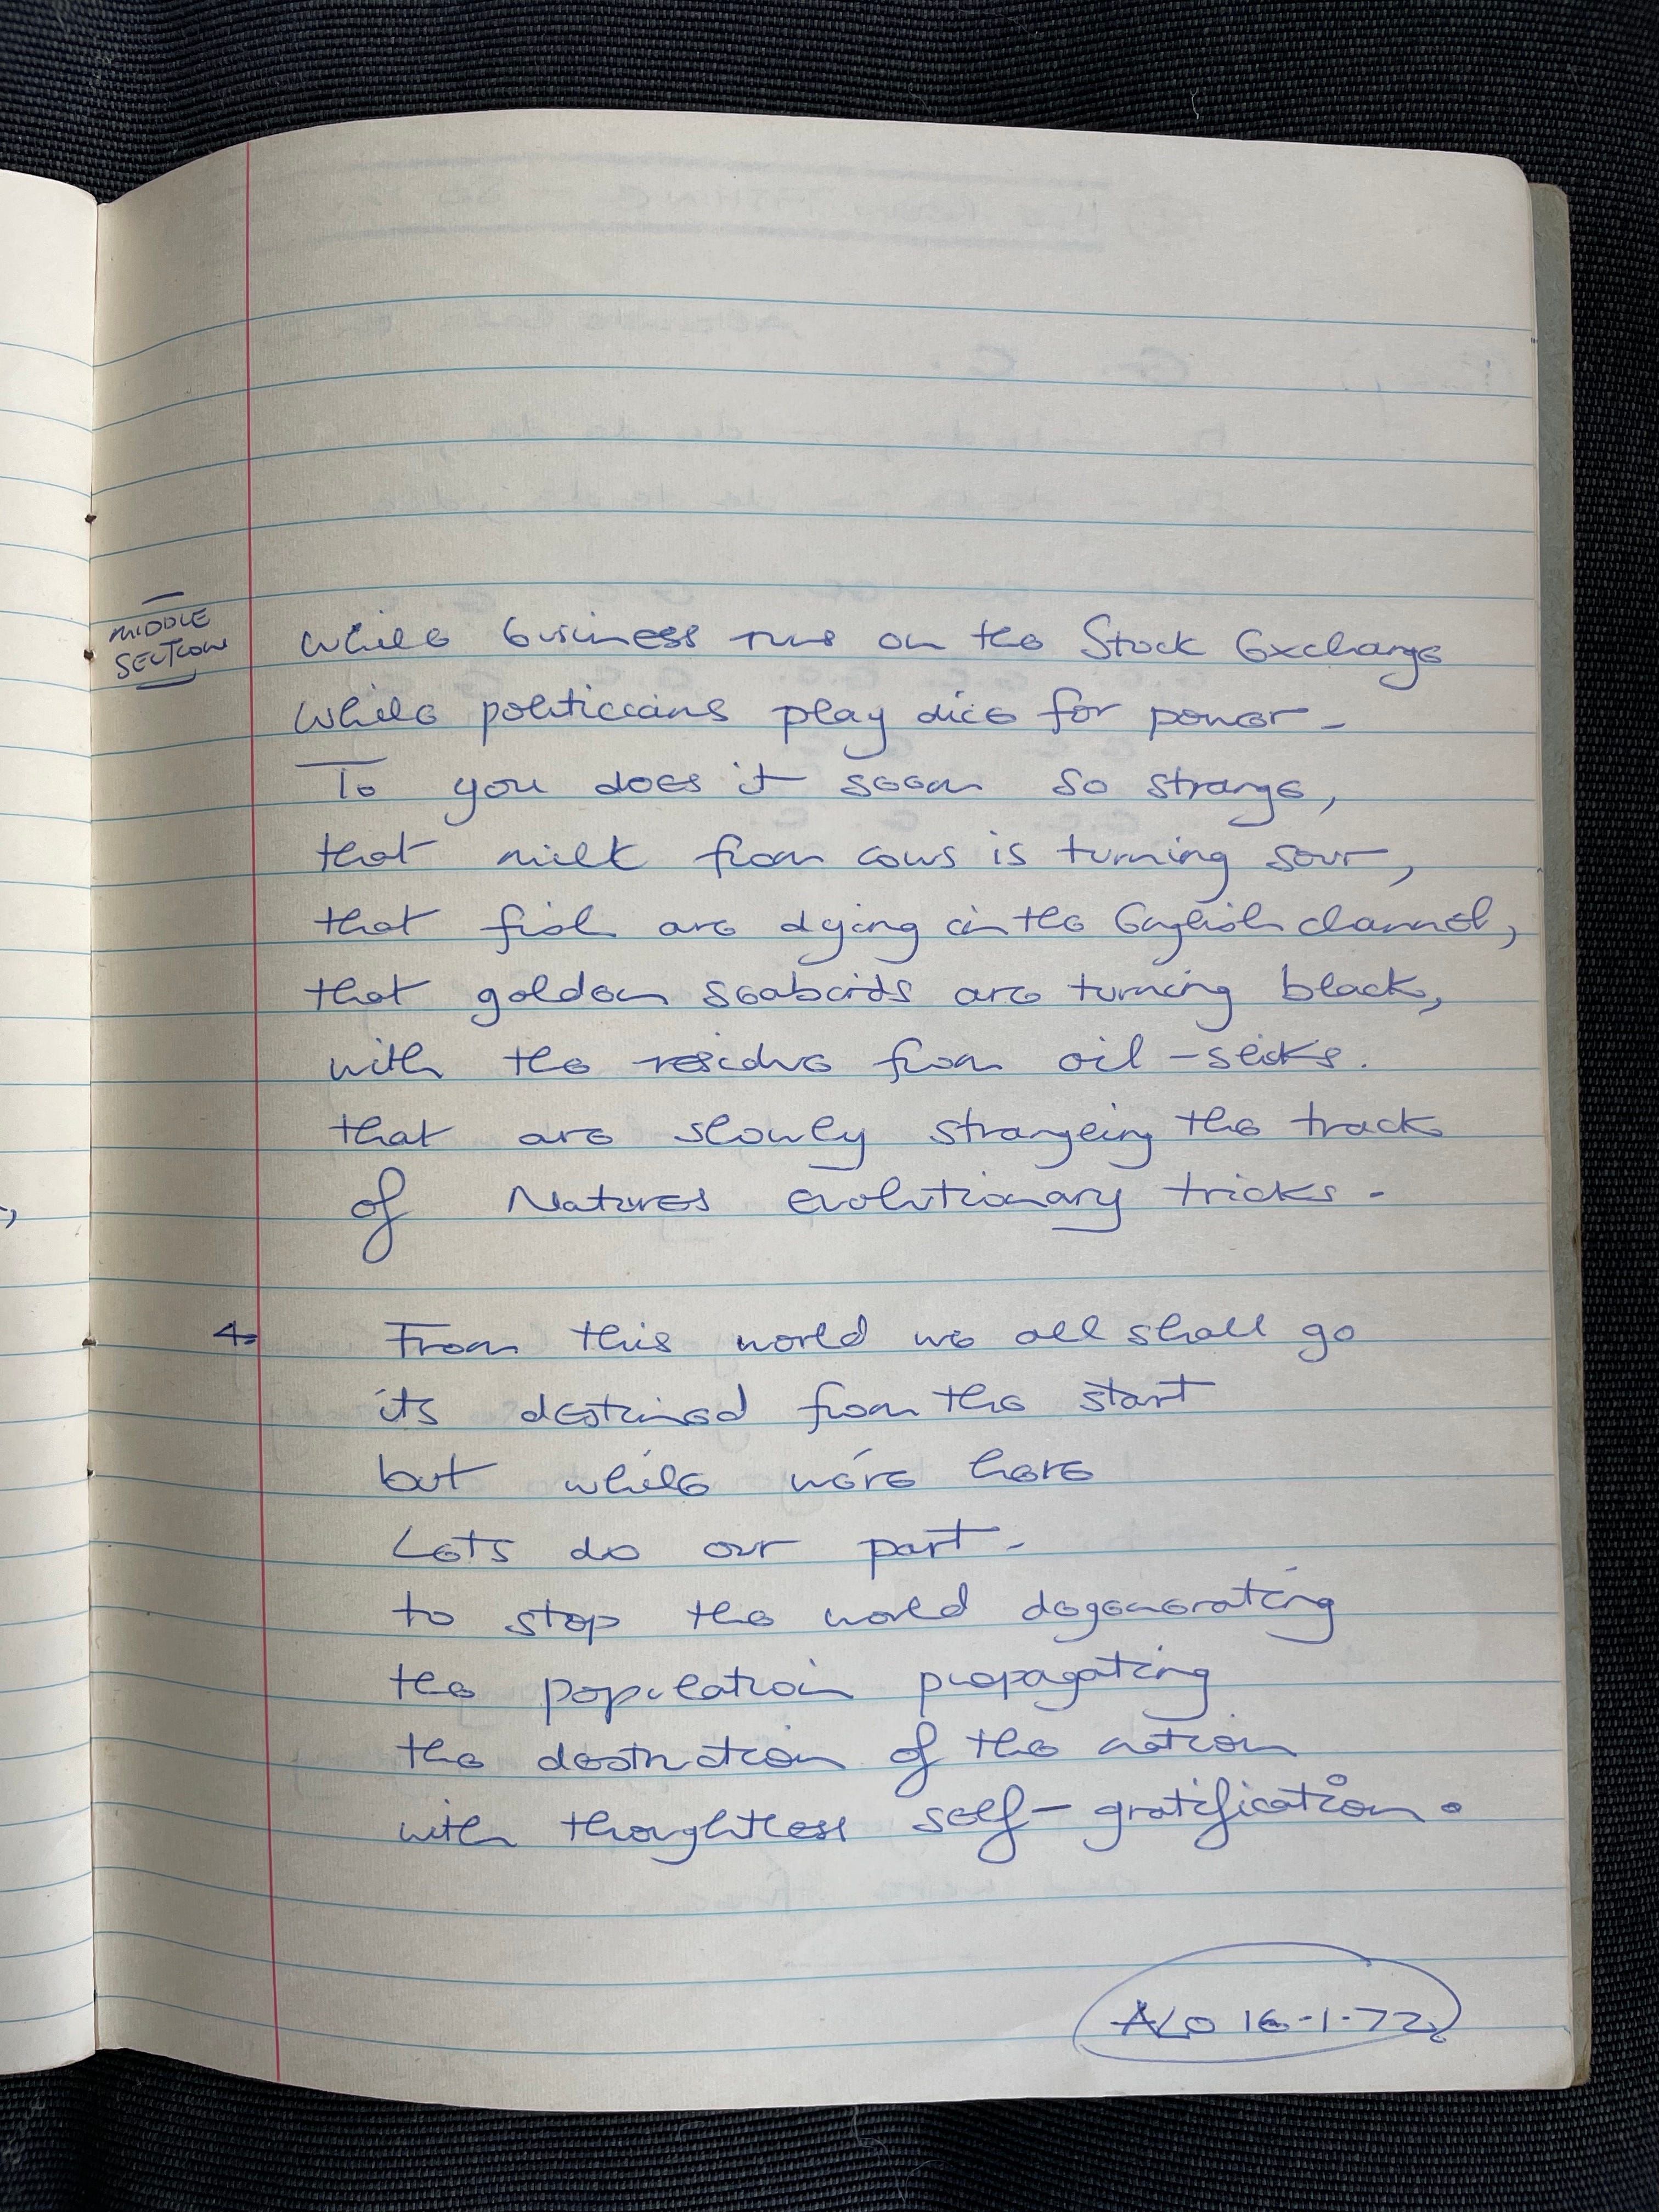 MIDDLE
SECTION
While business runs on the Stock Exchange
While politicians play dice for power -
To you does it seem so strange,
that milk from cows is turning sour,
that fish are dying in the English channel,
that golden seabirds are turning black,
with the residue from oil-slicks.
that are slowly strangling the track
of Natures evolutionary tricks.
4.
From this world we all shall go
its destined from the start
but while we're here
Lets do our part -
to stop the world degenerating
the population propagating
the destruction of the nation
with thoughtless self-gratification.
16-1-72